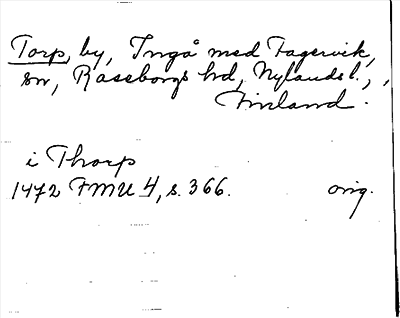 Torp, by, Ingå med Fagervik,
sn, Raseborgs hd, Nylands l.,
Finland.
i Thorp
1472 FMU 4, s. 366. orig.